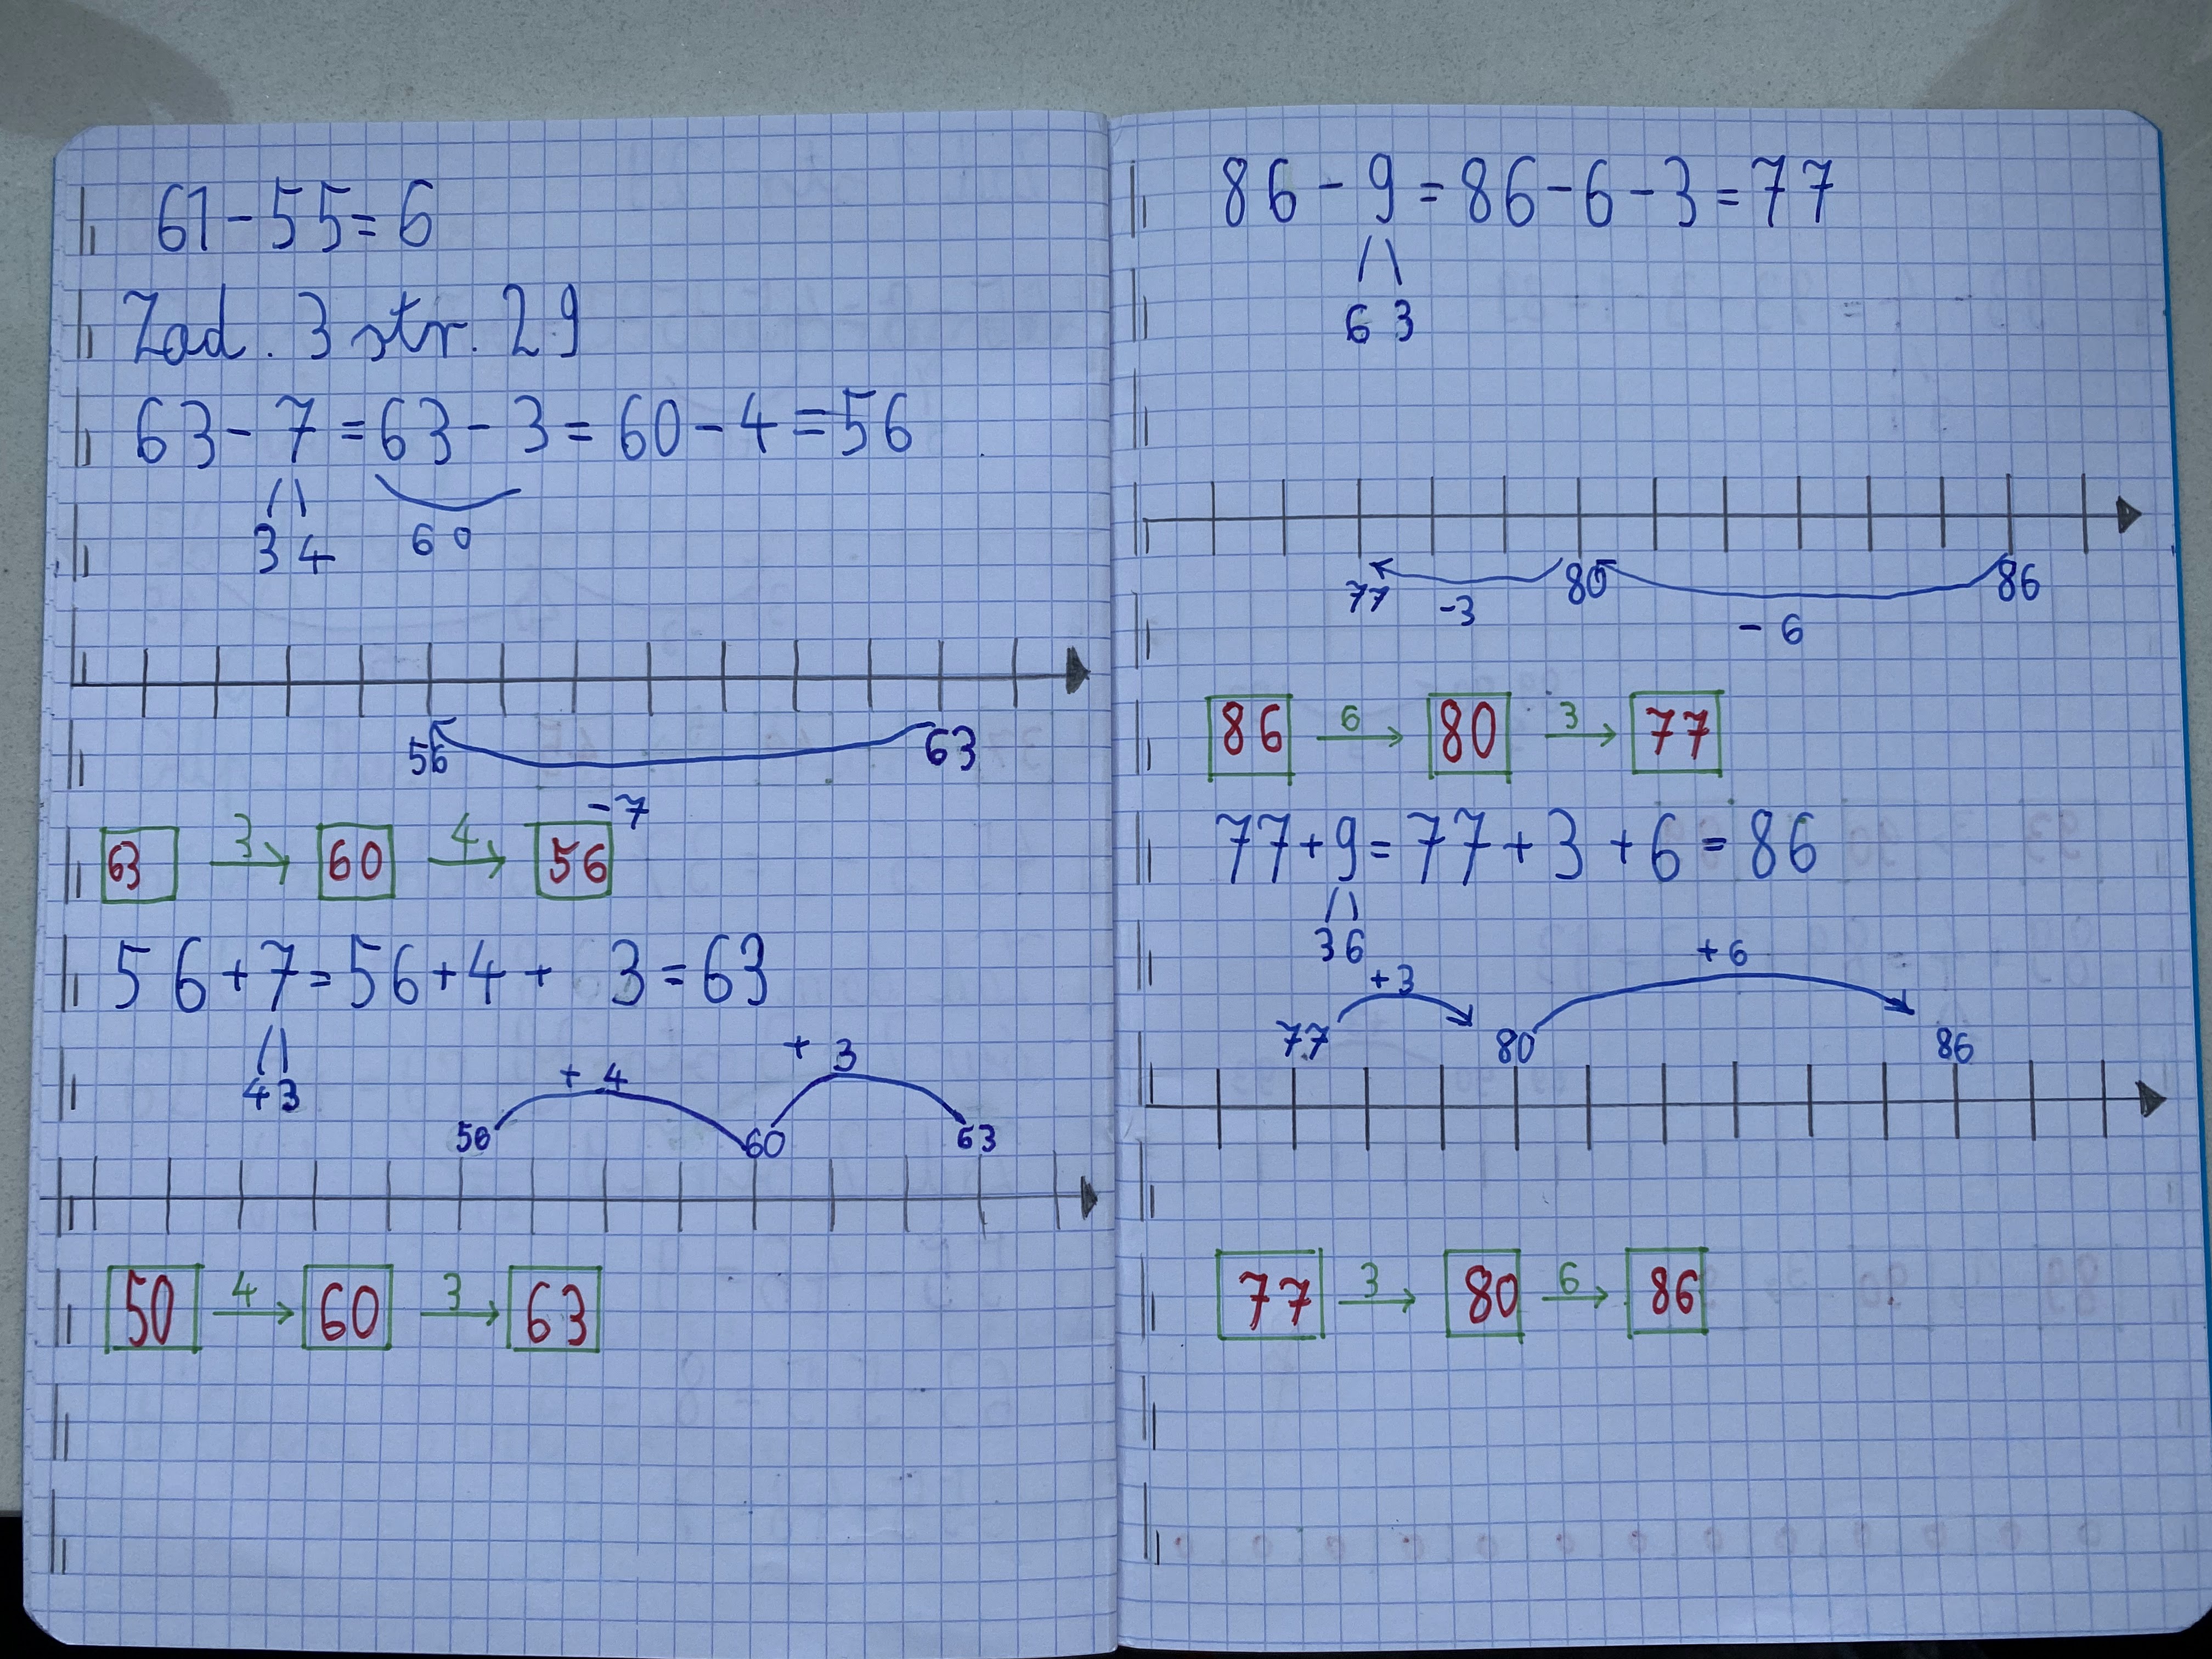 61-55=6
Zad. 3 str. 29
63-7=63-3=60-4=56
3 4 60
56 63
-7
63 3 60 4 56
56+7=56+4+ 3=63
4 3
+ 4 + 3
56 60 63
50 4 60 3 63
86-9=86-6-3=77
6 3
77 -3 80 -6 86
86 6 80 3 77
77+9=77+3+6=86
3 6
+3 +6
77 80 86
77 3 80 6 86